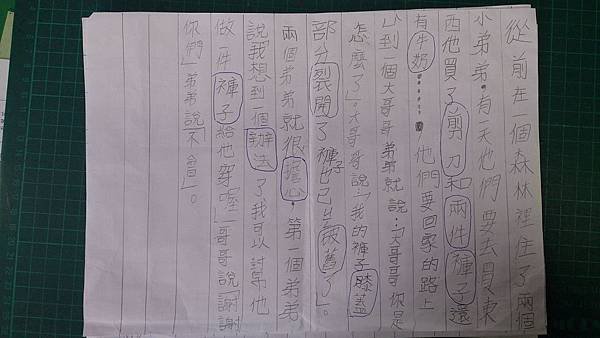 從前在一個森林裡住了兩個
小弟弟,有一天他們要去買東
西他買了剪刀和兩件褲子還
有牛奶……,他們要回家的路上
小到一個大哥哥弟弟就說:「大哥哥你是
怎麼了」。大哥哥說:「我的褲子膝蓋
部分裂開了褲子也已破舊了」。
兩個弟弟就很擔心,第一個弟弟
說我想到一個辦法了我可以幫他
做一件褲子給他穿喔」哥哥說謝謝
你們」弟弟說「不會」。